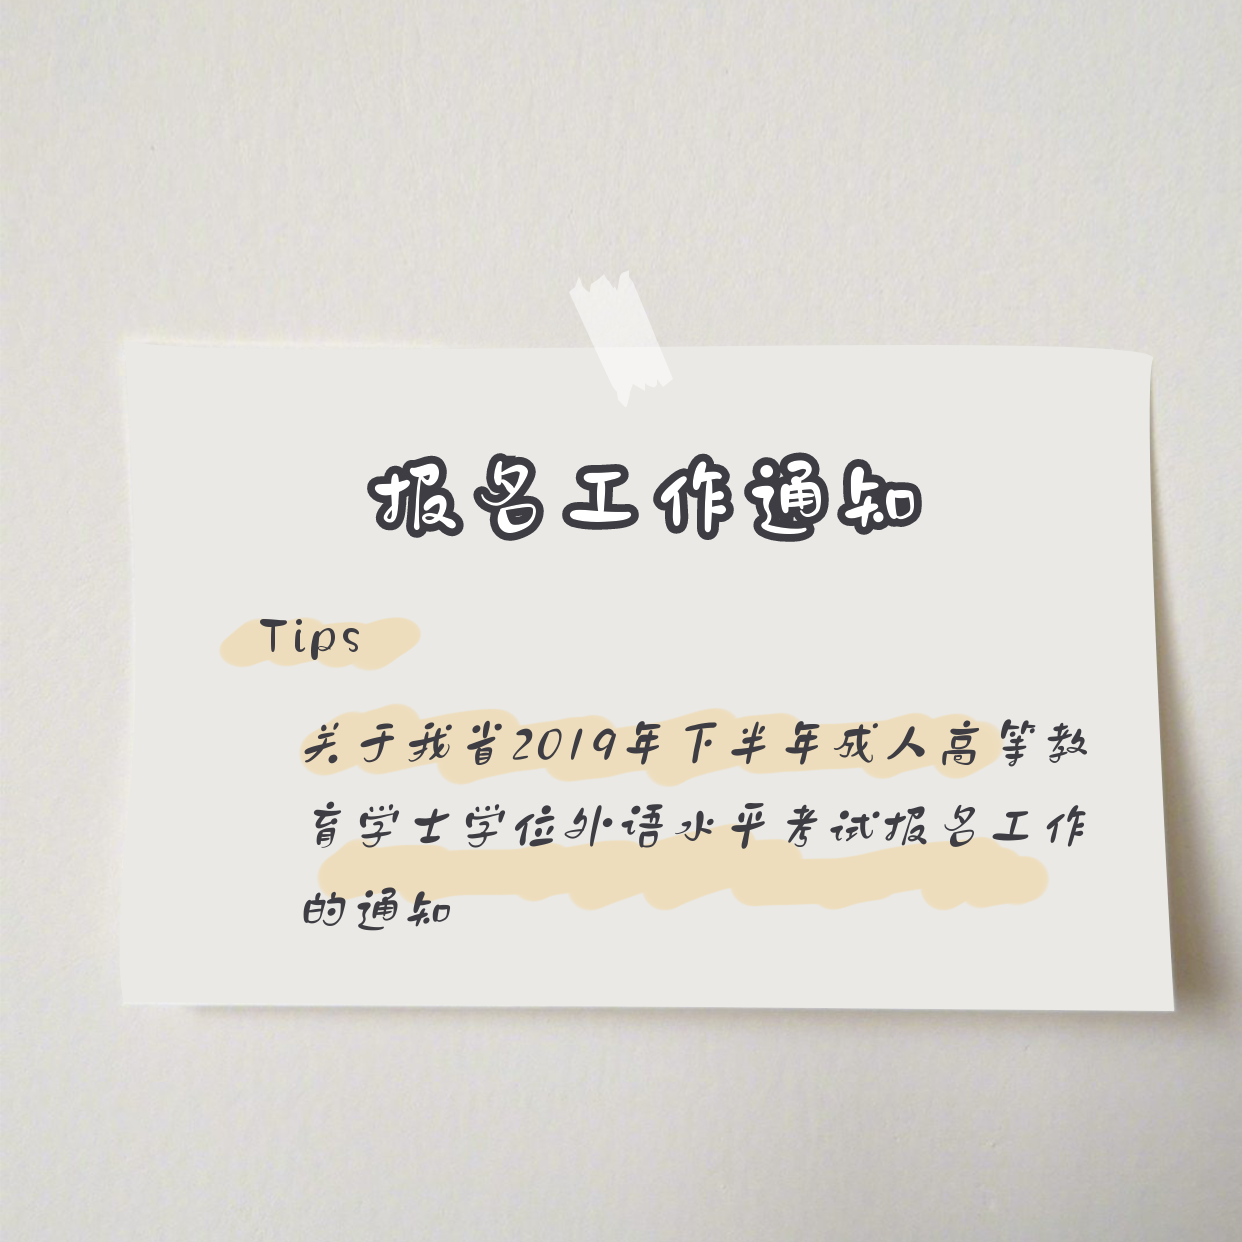 报名工作通知
Tips
关于我省2019年下半年成人高等教
育学士学位外语水平考试报名工作
的通知